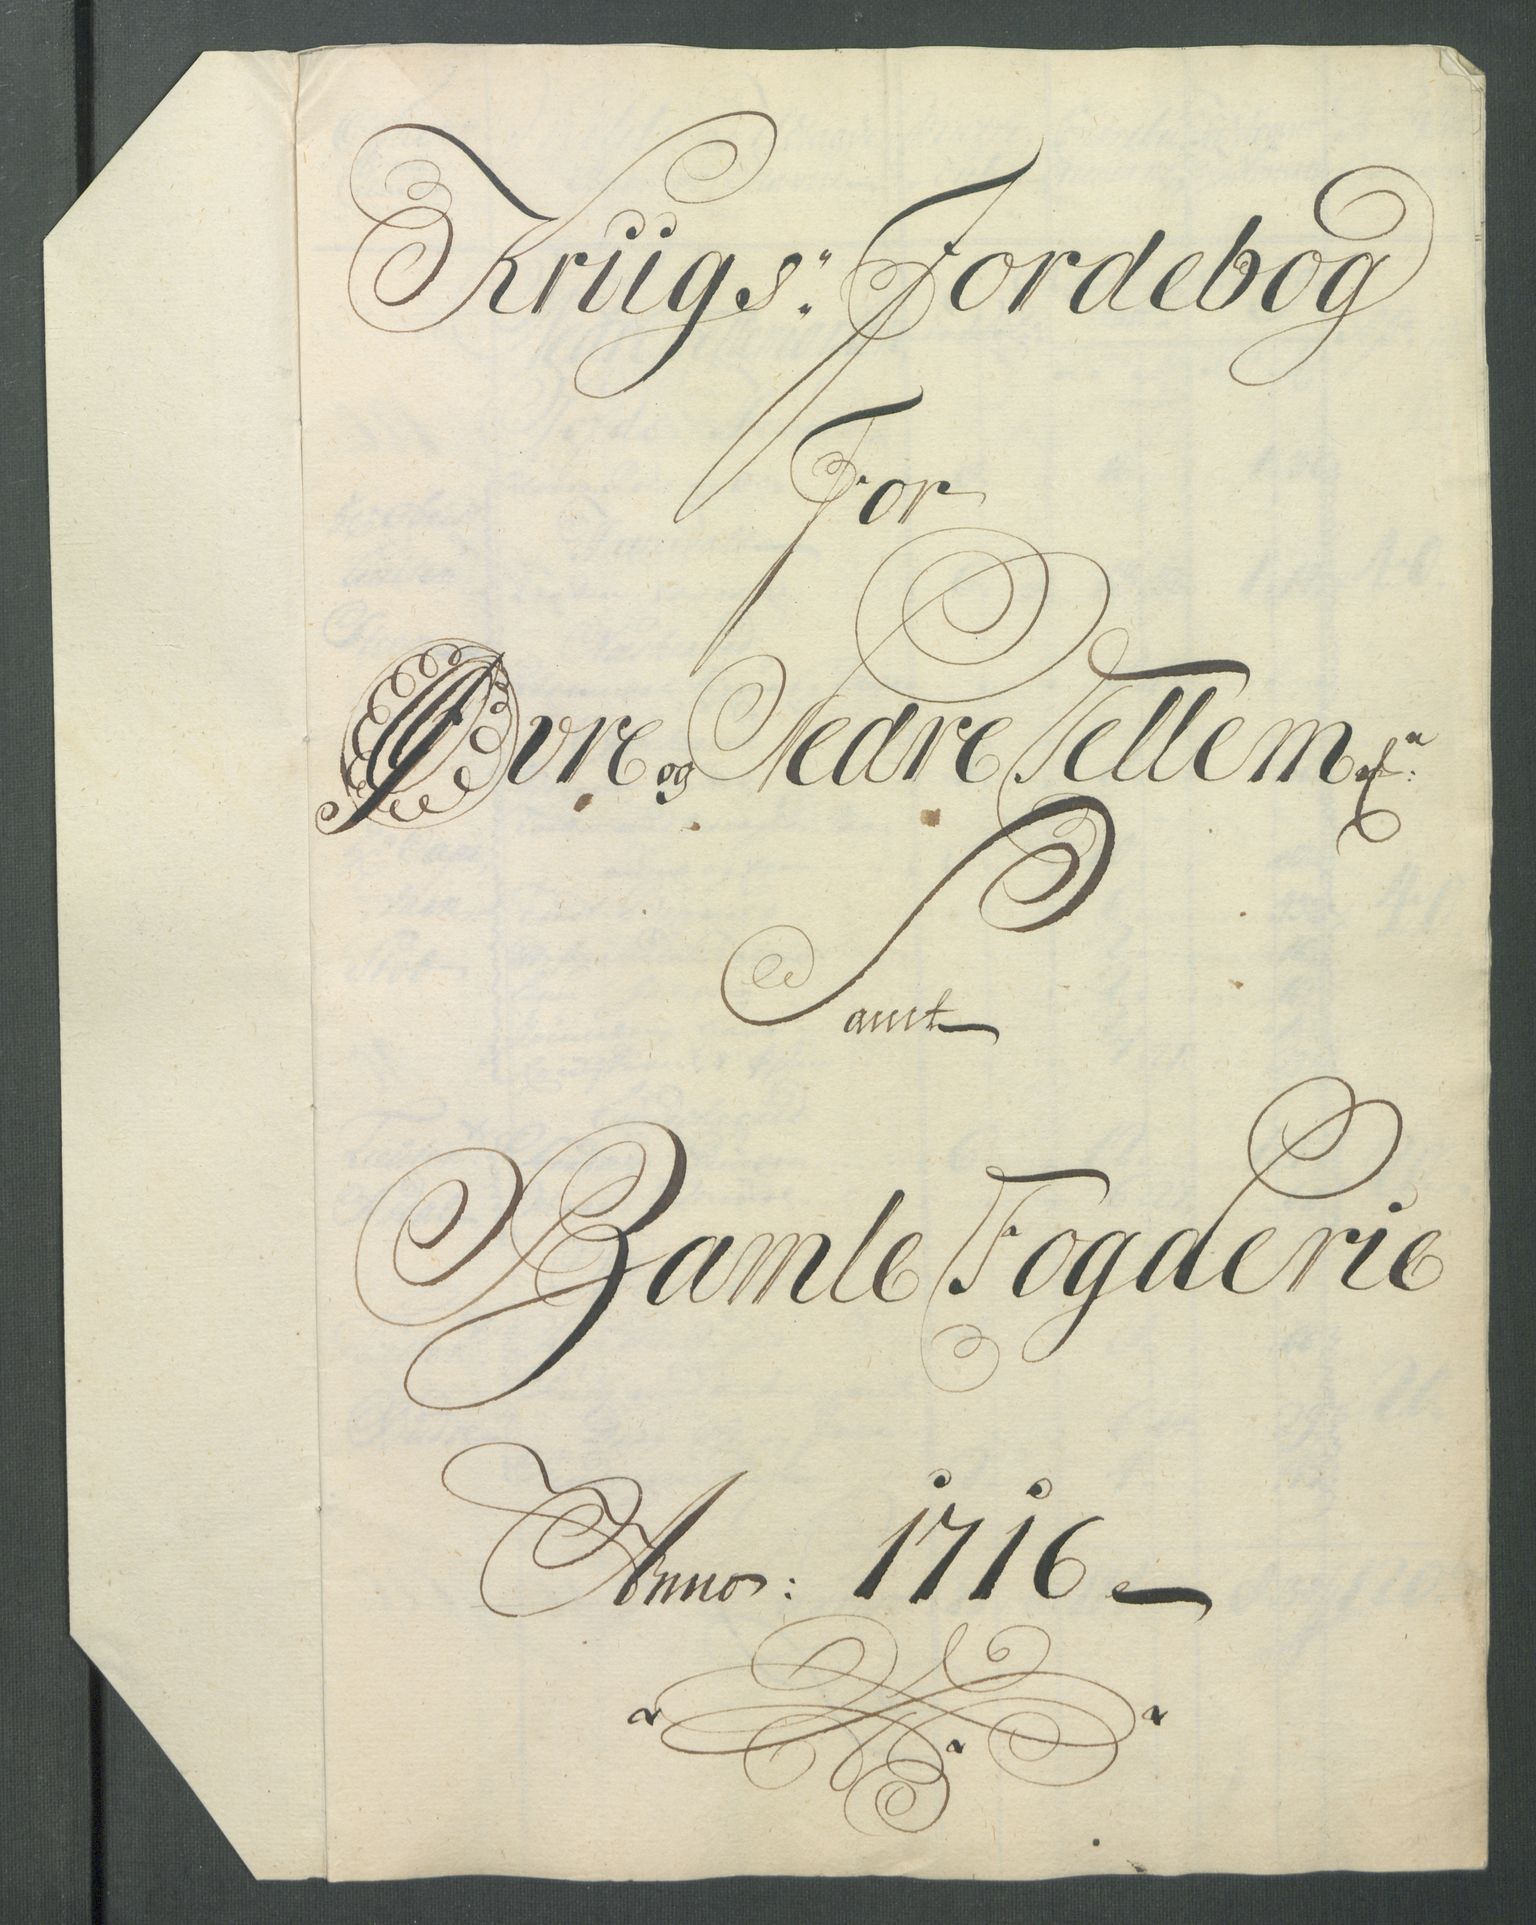 Kriigs: Jordebog
For
Øvre og Nedre Tellem:
Samt
Bamle Fogderie
Anno: 1716